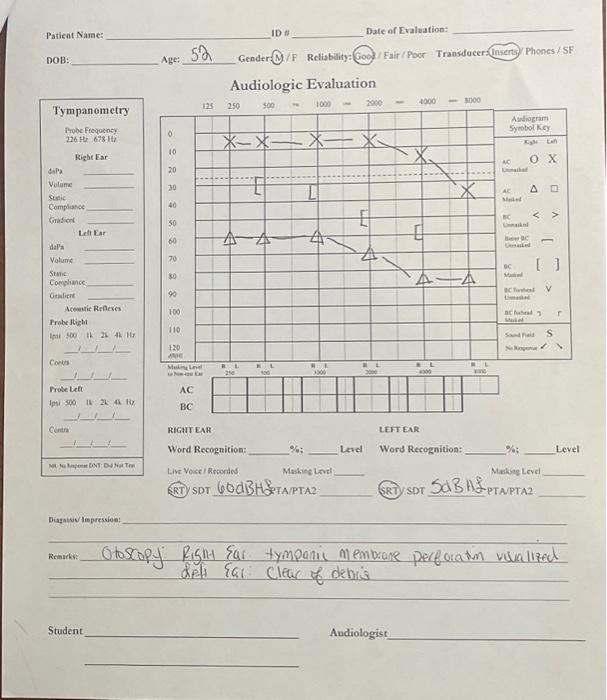 Patient Name: ID # Date of Evaluation:
DOB: Age: 52 Gender: M / F Reliability: Good / Fair / Poor Transducer: Inserts / Phones / SF
Audiologic Evaluation
Tympanometry
Probe Frequency
226 Hz 678 Hz
Right Ear
daPa
Volume
Static
Compliance
Gradient
Left Ear
daPa
Volume
Static
Compliance
Gradient
Acoustic Reflexes
Probe Right
Ipsi 500 1k 2k 4k Hz
Contra
Probe Left
Ipsi 500 1k 2k 4k Hz
Contra
NR No Response DNT Did Not Test
125 250 500 1000 2000 4000 8000
0
10
20
30
40
50
60
70
80
90
100
110
120
Audiogram
Symbol Key
Right Left
AC Unmasked O X
AC Masked Δ □
BC Unmasked < >
BC Masked [ ]
BC Forehead Unmasked V
BC Forehead Masked
Sound Field S
No Response
Masking Level
R L R L R L R L R L R L
250 500 1000 2000 4000 8000
AC
BC
RIGHT EAR LEFT EAR
Word Recognition: %; Level Word Recognition: %; Level
Live Voice / Recorded Masking Level Masking Level
SRT/ SDT 60dBHL PTA/PTA2 SRT/ SDT 5dBHL PTA/PTA2
Diagnosis/ Impression:
Remarks: Otoscopy: Right Ear: tympanic membrane perforation visualized
Left Ear: Clear of debris
Student Audiologist